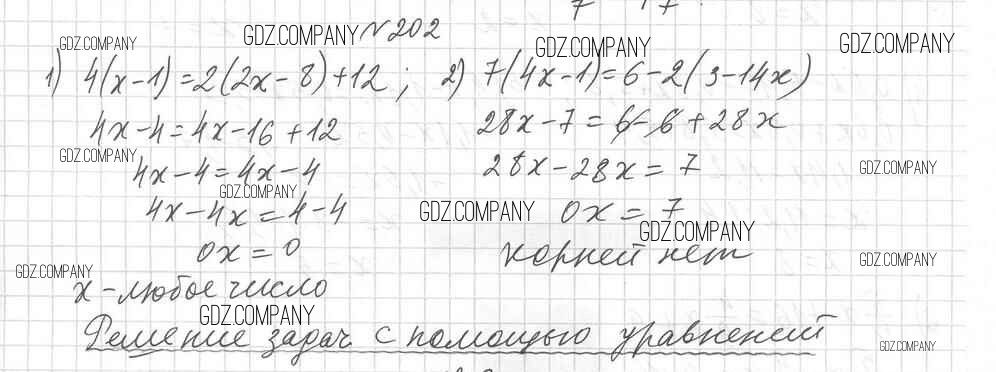 №202
1) 4(x-1)=2(2x-8)+12; 2) 7(4x-1)=6-2(3-14x)
4x-4=4x-16+12
28x-7=6-6+28x
4x-4=4x-4
28x-28x=7
4x-4x=4-4
0x=7
0x=0
корней нет
x-любое число
Решение задач с помощью уравнений
GDZ.COMPANY
GDZ.COMPANY
GDZ.COMPANY
GDZ.COMPANY
GDZ.COMPANY
GDZ.COMPANY
GDZ.COMPANY
GDZ.COMPANY
GDZ.COMPANY
GDZ.COMPANY
GDZ.COMPANY
GDZ.COMPANY
GDZ.COMPANY